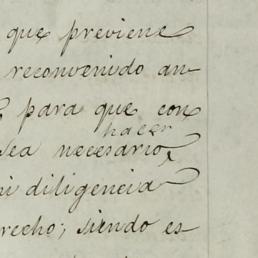 que previene
reconvenido an-
para que con
hacer
sea necesario,
ni diligencia
recho; siendo es-